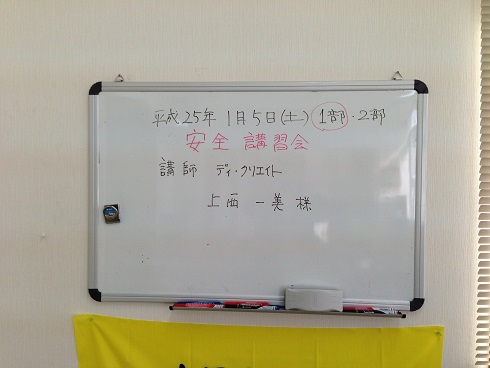 平成25年1月5日(土) 1部・2部
安全 講習会
講師 ディ・クリエイト
上西 一美 様